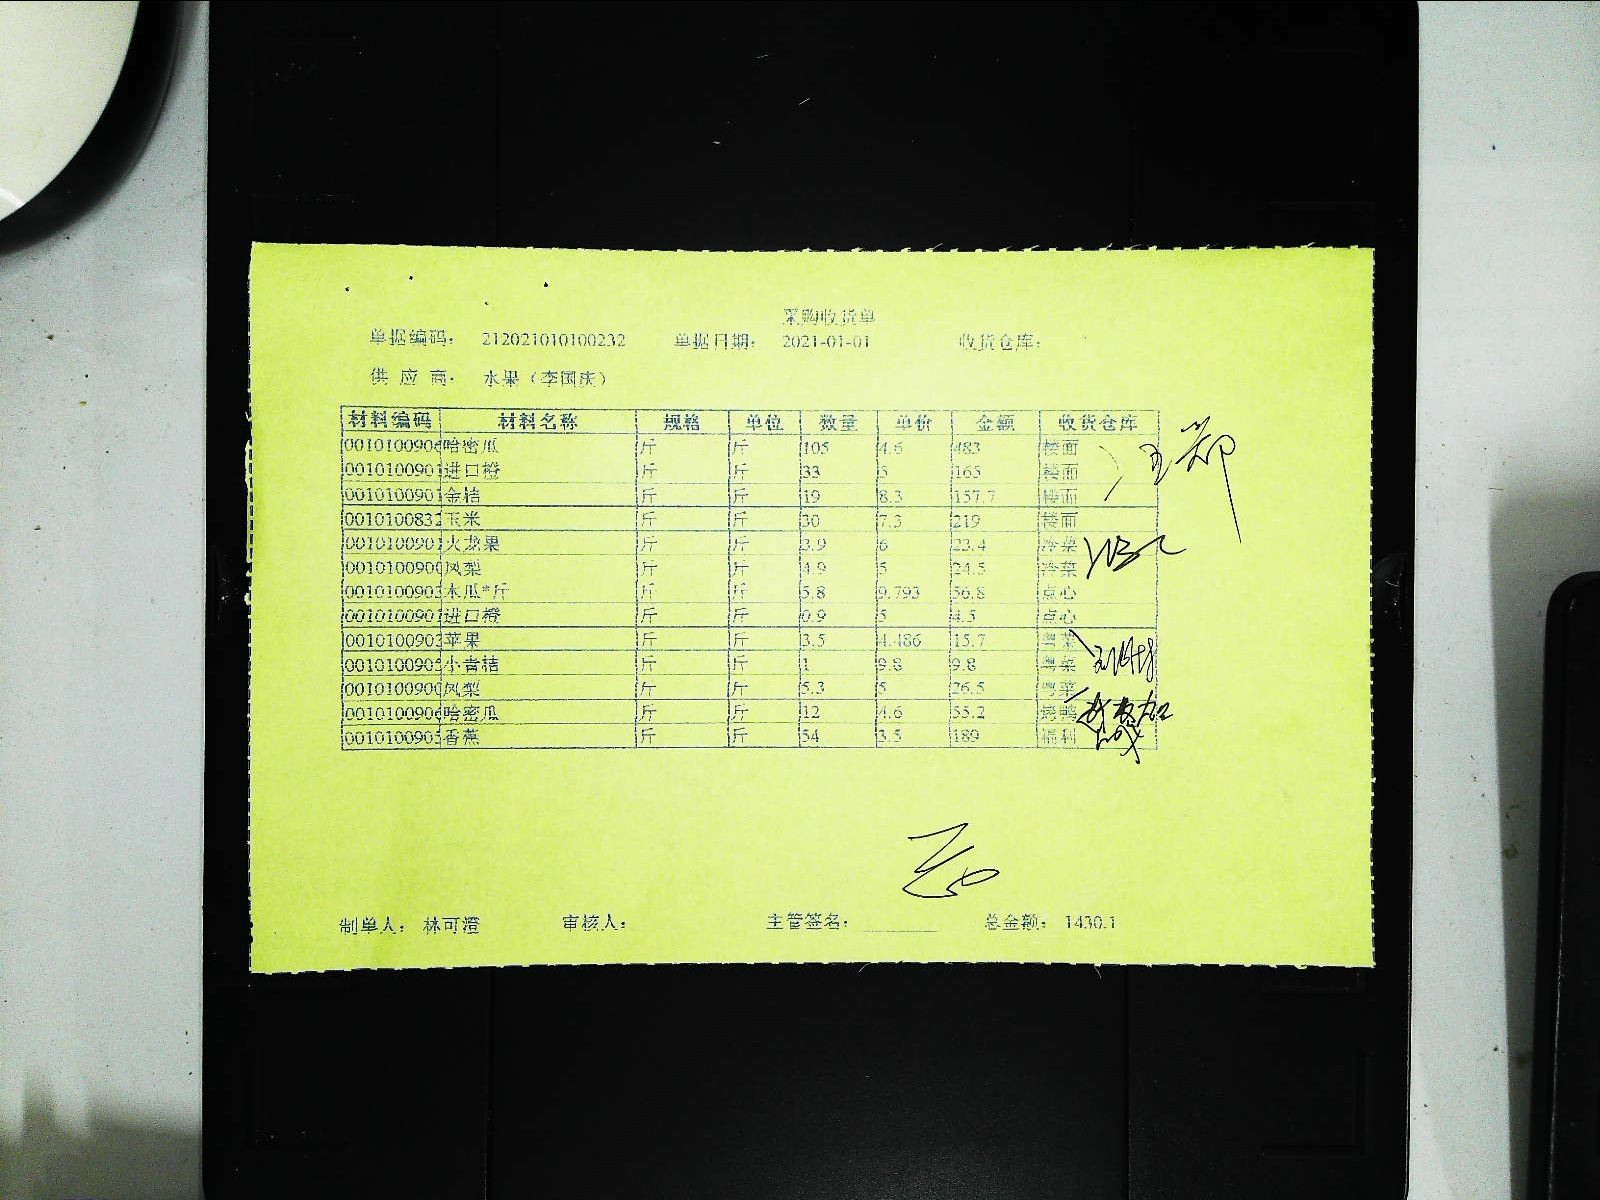 采购收货单
单据编码： 212021010100232 单据日期： 2021-01-01 收货仓库：
供 应 商： 水果（李国庆）
材料编码 材料名称 规格 单位 数量 单价 金额 收货仓库
0010100906 哈密瓜 斤 斤 105 4.6 483 楼面
0010100901 进口橙 斤 斤 33 5 165 楼面
0010100901 金桔 斤 斤 19 8.3 157.7 楼面
0010100832 玉米 斤 斤 30 7.3 219 楼面
0010100901 火龙果 斤 斤 3.9 6 23.4 冷菜
0010100900 凤梨 斤 斤 4.9 5 24.5 冷菜
0010100903 木瓜*斤 斤 斤 5.8 9.793 56.8 点心
0010100901 进口橙 斤 斤 0.9 5 4.5 点心
0010100903 苹果 斤 斤 3.5 4.486 15.7 粤菜
0010100905 小青桔 斤 斤 1 9.8 9.8 粤菜
0010100900 凤梨 斤 斤 5.3 5 26.5 粤菜
0010100906 哈密瓜 斤 斤 12 4.6 55.2 烤鸭
0010100905 香蕉 斤 斤 54 3.5 189 福利
制单人： 林可澄 审核人： 主管签名： 总金额： 1430.1